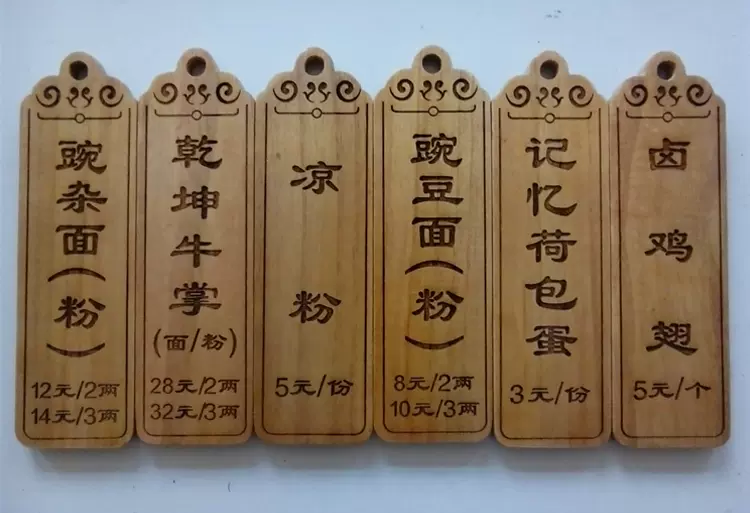 豌杂面(粉)
12元/2两
14元/3两
乾坤牛掌
(面/粉)
28元/2两
32元/3两
凉粉
5元/份
豌豆面(粉)
8元/2两
10元/3两
记忆荷包蛋
3元/份
卤鸡翅
5元/个